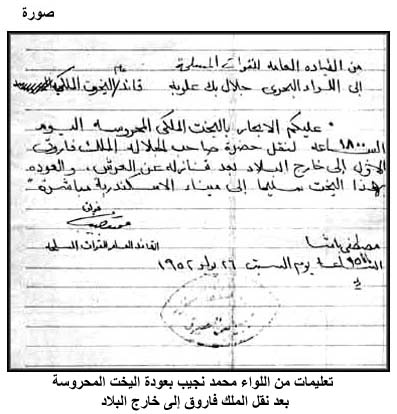 صورة
من القيادة العامة للقوات المسلحة
إلى اللواء البحرى جلال بك علوبة قائد عام اليخت الملكى المحروسة
عليكم الابحار باليخت الملكى المحروسة اليوم
الساعة ١٨٠٠ لنقل حضرة صاحب الجلالة الملك فاروق
الاول إلى خارج البلاد بعد تنازله عن العرش، والعودة
بهذا اليخت سليما إلى ميناء الاسكندرية مباشرة
القائد العام للقوات المسلحة
مصطفى باشا
يوم السبت ٢٦ يوليو ١٩٥٢
تعليمات من اللواء محمد نجيب بعودة اليخت المحروسة
بعد نقل الملك فاروق إلى خارج البلاد